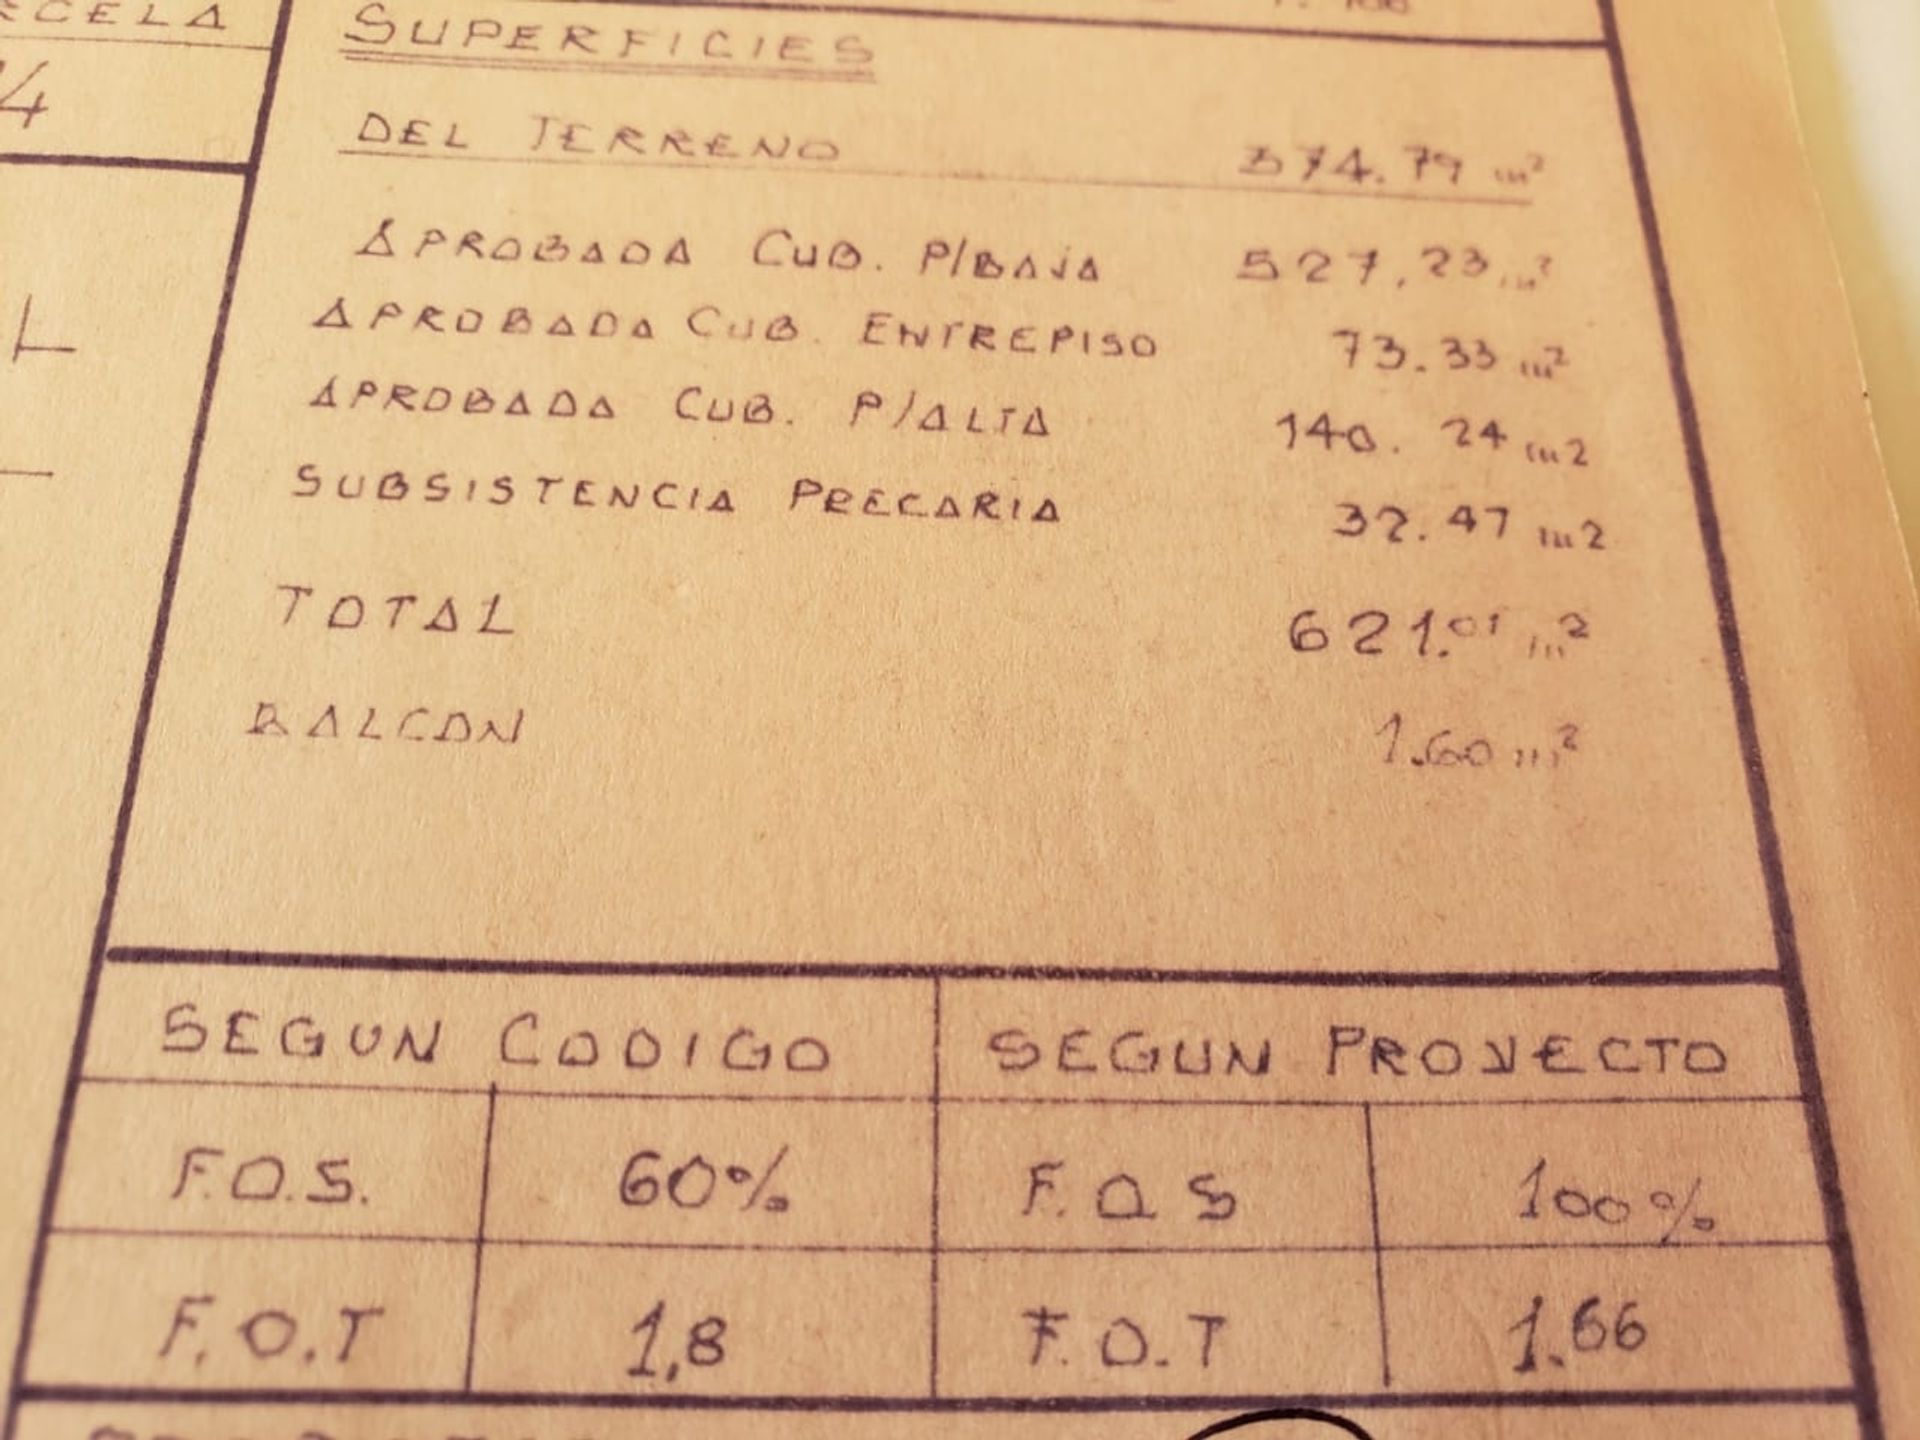 SUPERFICIES
DEL TERRENO 374.79 m²
APROBADA CUB. P/BAJA 527,23 m²
APROBADA CUB. ENTREPISO 73.33 m²
APROBADA CUB. P/ALTA 140.24 m2
SUBSISTENCIA PRECARIA 32.47 m2
TOTAL 621.01 m²
BALCON 1.60 m²
SEGUN CODIGO SEGUN PROYECTO
F.O.S. 60% F.O.S 100%
F.O.T 1,8 F.O.T 1.66